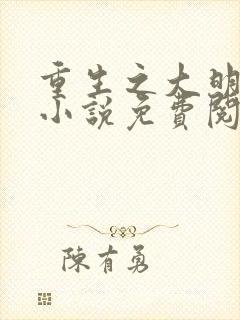 重生之大明
小說免費閱
陳有勇